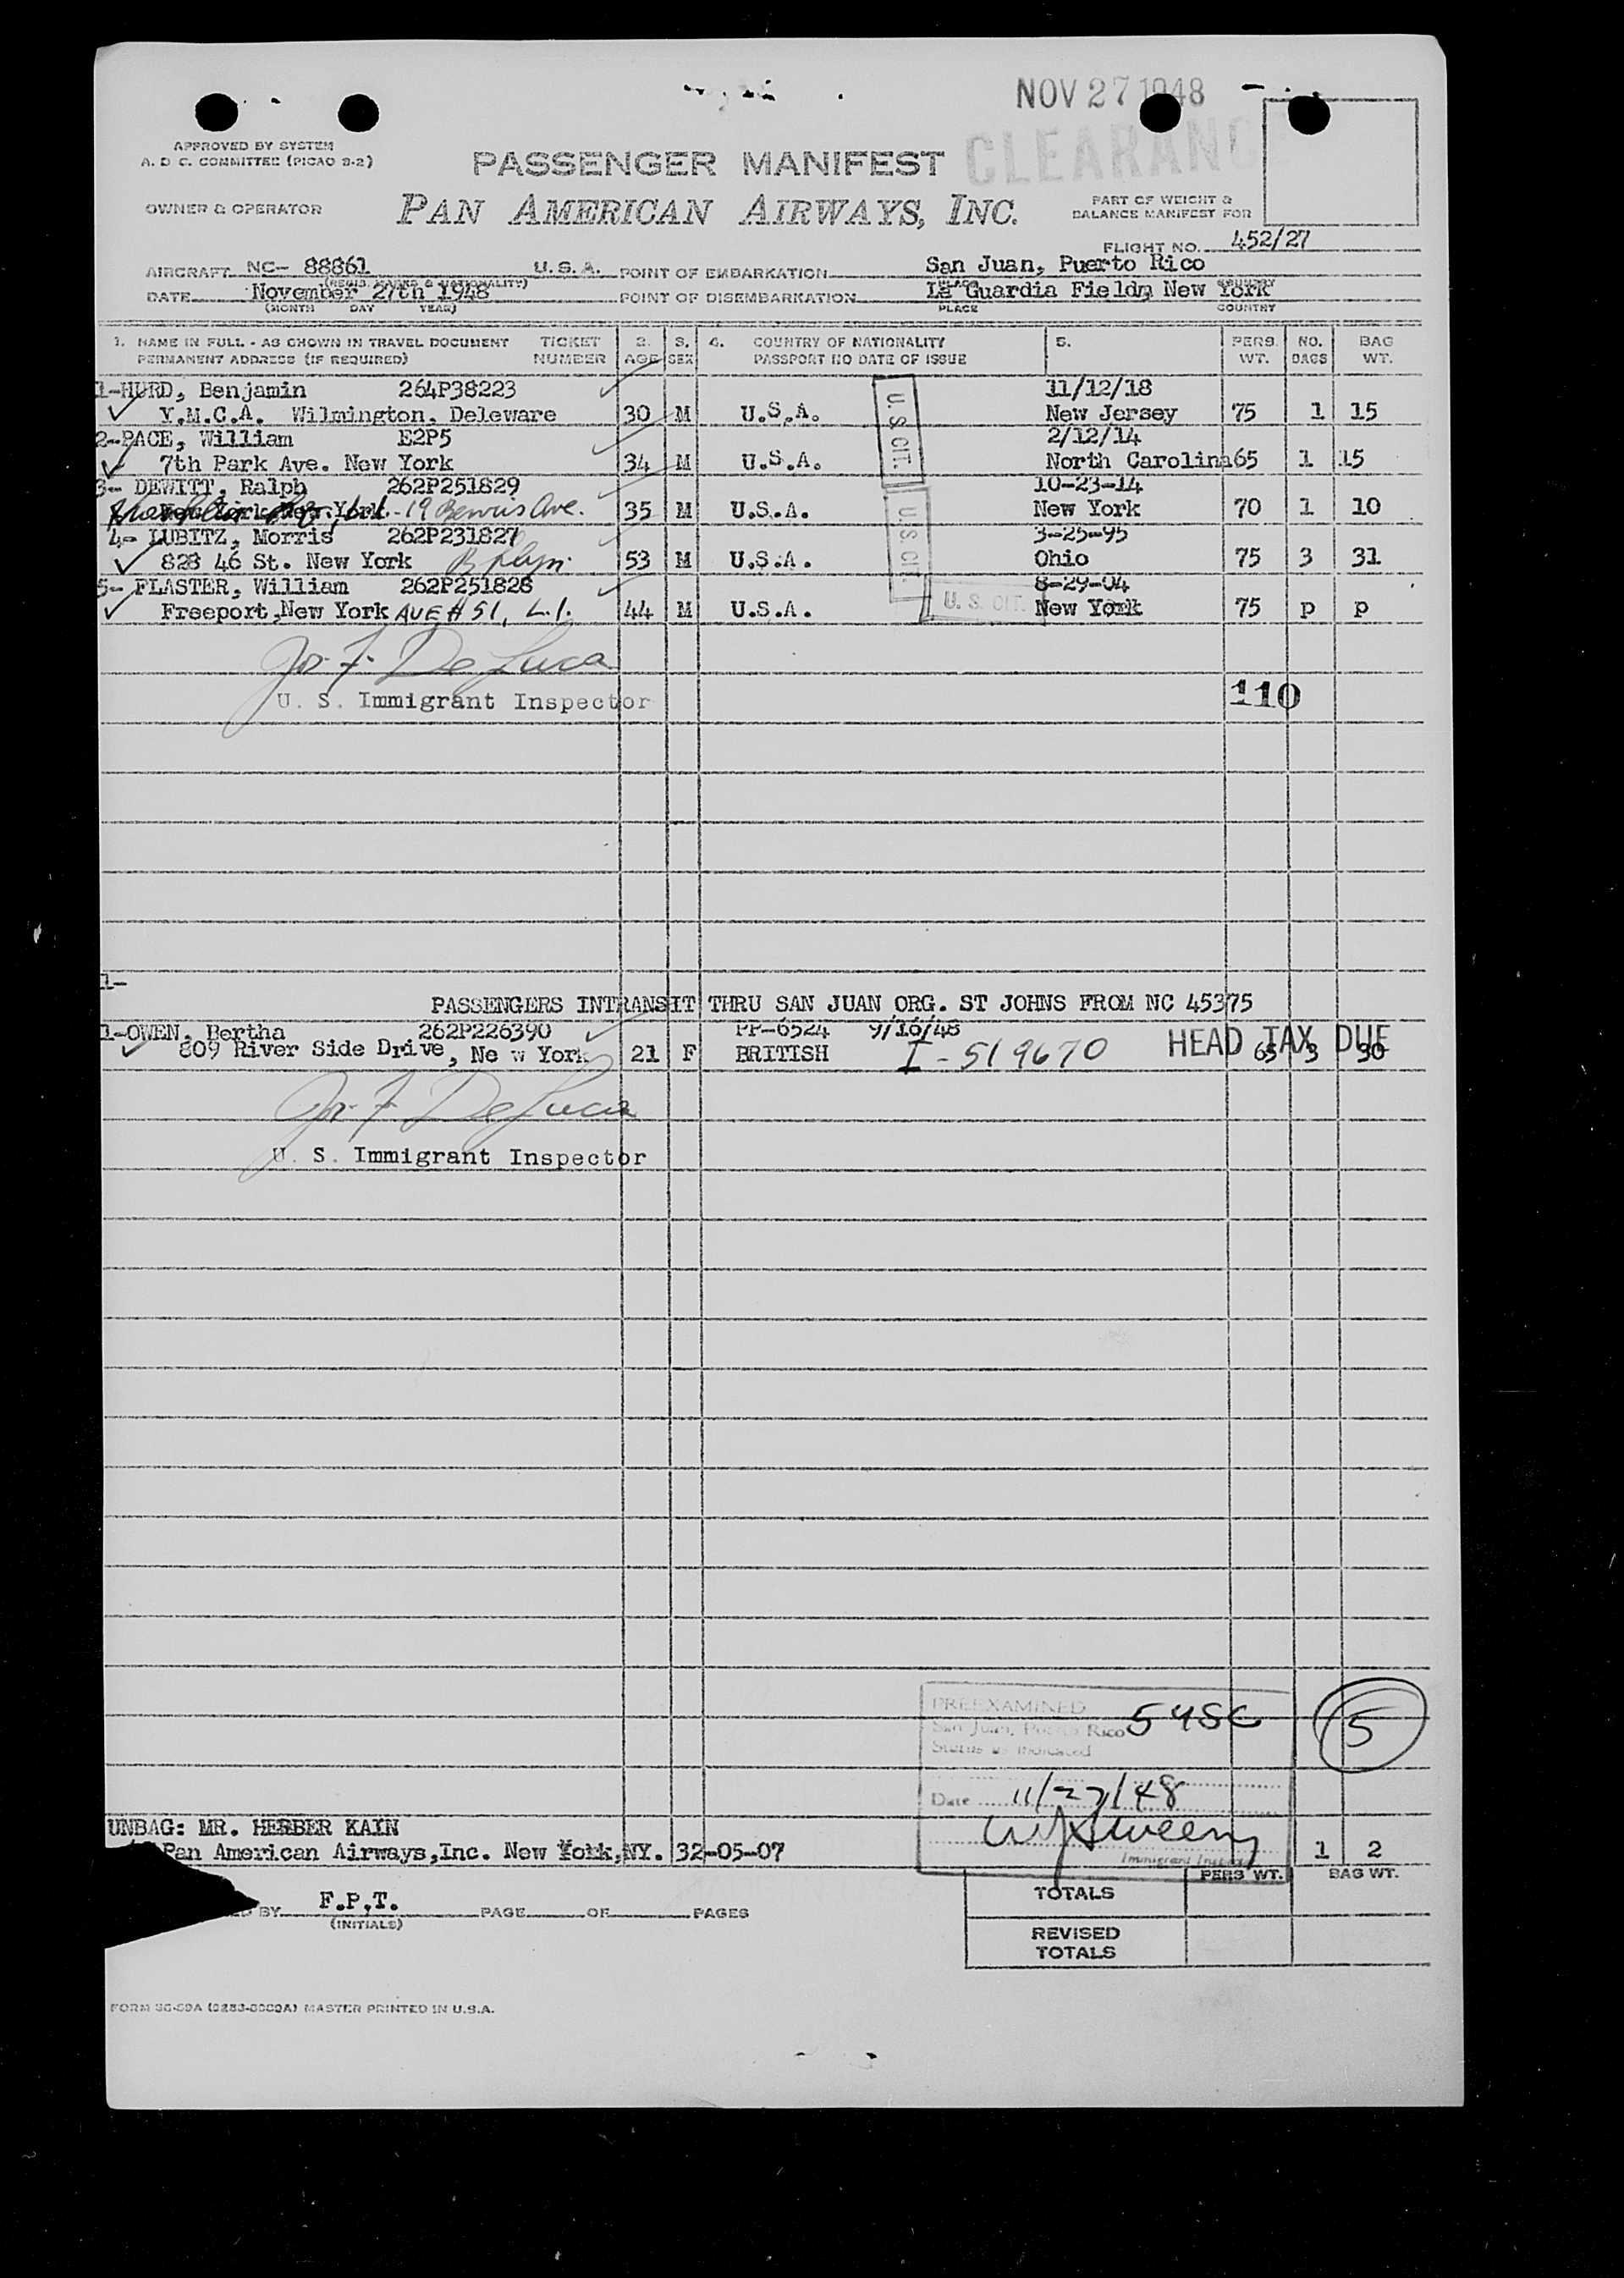 NOV 27 1948
CLEARANC
APPROVED BY SYSTEM
A. D C. COMMITTEE (PICAO 9-2)
PASSENGER MANIFEST
OWNER & OPERATOR
PAN AMERICAN AIRWAYS, INC.
PART OF WEIGHT &
BALANCE MANIFEST FOR
FLIGHT NO. 452/27
AIRCRAFT NC- 88861 U.S.A. POINT OF EMBARKATION San Juan, Puerto Rico
(REGIS. MARKS & NATIONALITY) PLACE COUNTRY
DATE November 27th 1948 POINT OF DISEMBARKATION La Guardia Field, New York
(MONTH DAY YEAR) PLACE COUNTRY
1. NAME IN FULL - AS SHOWN IN TRAVEL DOCUMENT TICKET 2. 3. 4. COUNTRY OF NATIONALITY 5. PERS. NO. BAG
PERMANENT ADDRESS (IF REQUIRED) NUMBER AGE SEX PASSPORT NO DATE OF ISSUE WT. BAGS WT.
1-HURD, Benjamin 264P38223 11/12/18
Y.M.C.A. Wilmington, Deleware 30 M U.S.A. U.S. CIT. New Jersey 75 1 15
2-PACE, William E2P5 2/12/14
7th Park Ave. New York 34 M U.S.A. North Carolina 65 1 15
3- DEWITT, Ralph 262P251829 10-23-14
New York, New York - 19 Ave. 35 M U.S.A. U.S. CIT. New York 70 1 10
4- LUBITZ, Morris 262P231827 3-25-95
828 46 St. New York Bklyn. 53 M U.S.A. Ohio 75 3 31
5- FLASTER, William 262P251828 8-29-04
Freeport, New York AVE # 51, L.I. 44 M U.S.A. U. S. CIT. New York 75 p p
Jos. F. De Luca
U. S. Immigrant Inspector 110
1-
PASSENGERS INTRANSIT THRU SAN JUAN ORG. ST JOHNS FROM NC 45375
1-OWEN, Bertha 262P226390 PP-6524 9/16/48
809 River Side Drive, Ne w York 21 F BRITISH I-519670 HEAD TAX DUE 65 3 30
Jos. F. De Luca
U. S. Immigrant Inspector
PREEXAMINED
San Juan, Puerto Rico 5 USC 5
Status as indicated
Date 11/27/48
UNBAG: MR. HERBER KAIN
Pan American Airways,Inc. New York,NY. 32-05-07 1 2
Immigrant Inspector
PERS WT. BAG WT.
TOTALS
BY F.P.T. PAGE OF PAGES
(INITIALS)
REVISED
TOTALS
MASTER PRINTED IN U.S.A.